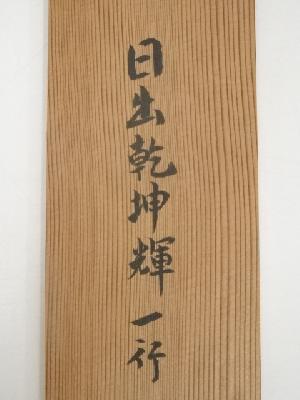 日出乾坤輝 一行